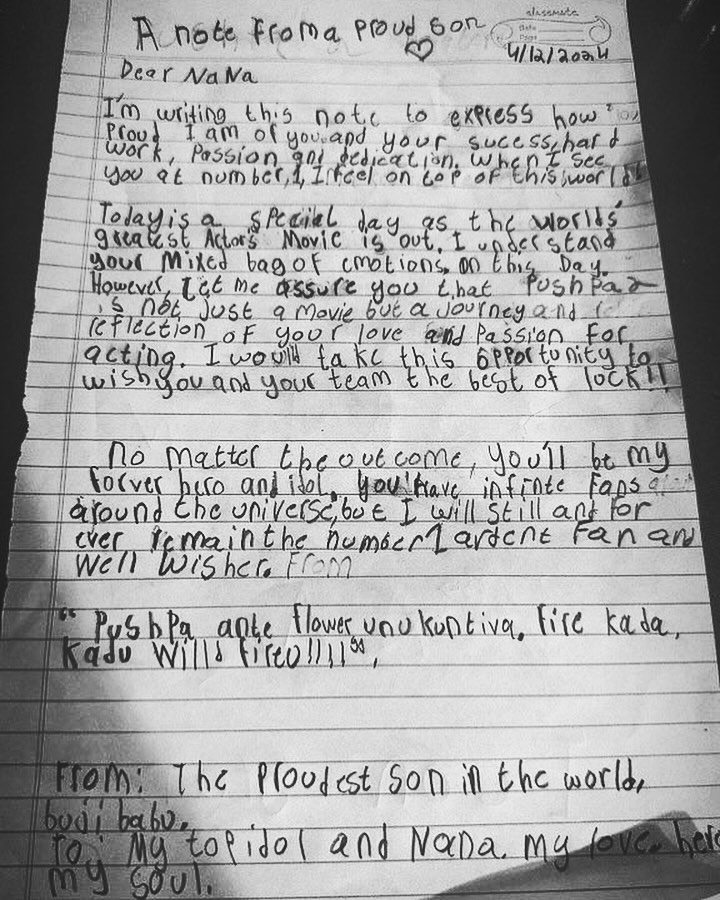 A note from a proud son
classmate
Date
Page
4/12/2024
Dear NaNa
I'm writing this note to express how
Proud I am of you and your sucess, hard
work, Passion and dedication. When I see
you at number, 1, I feel on top of this world
Today is a special day as the worlds'
greatest Actor's Movie is out. I understand
your Mixed bag of emotions, on this Day.
However, Let me assure you that PushPa2
is not just a movie but a Journey and
reflection of your love and Passion for
acting. I would take this opportunity to
wish you and your team the best of lock!!
No matter the outcome, you'll be my
forver hero and idol. you'll Have infinte Fans
around the universe, but I will still and For
ever remain the number 1 ardent Fan and
well wisher. From
"PushPa ante flower unukuntiva. Fire kada,
kadu Willd fireu!!!!",
From: The Proudest son in the world,
buji babu.
To: My top idol and NaNa. my love. hero
my soul.